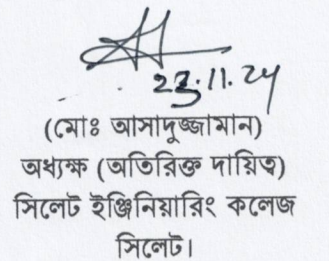 23.11.24
(মোঃ আসাদুজ্জামান)
অধ্যক্ষ (অতিরিক্ত দায়িত্ব)
সিলেট ইঞ্জিনিয়ারিং কলেজ
সিলেট।